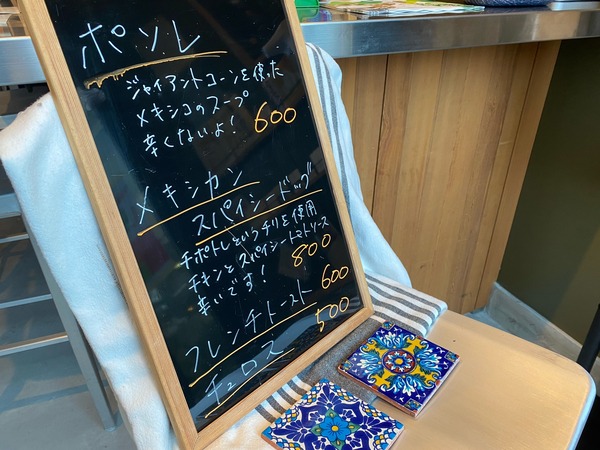 ポソレ
ジャイアントコーンを使った
メキシコのスープ
辛くないよ! 600
メキシカン
スパイシードッグ
チポトレというチリを使用
チキンとスパイシートマトソース
辛いです! 800
フレンチトースト 600
チュロス 500